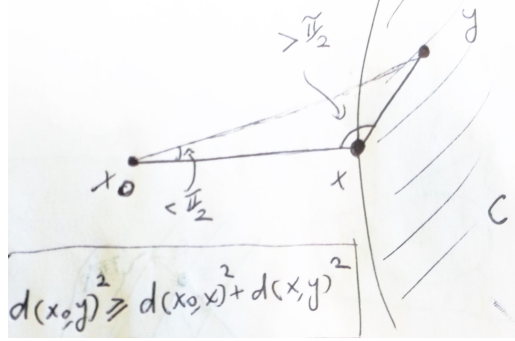 > π/2
y
x₀
x
< π/2
C
d(x₀,y)² ⩾ d(x₀,x)² + d(x,y)²